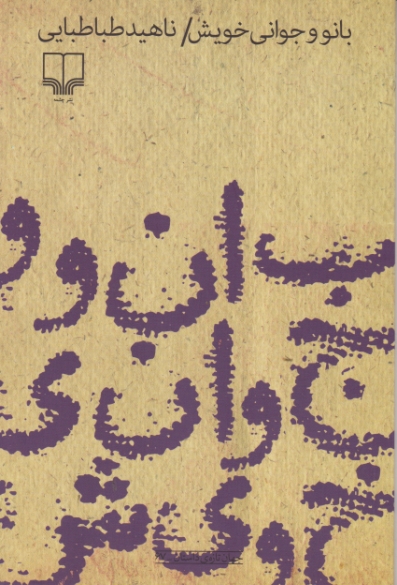 بانو و جوانی خویش/ ناهید طباطبایی
نشر چشمه
بانو و
جوانی
خویش